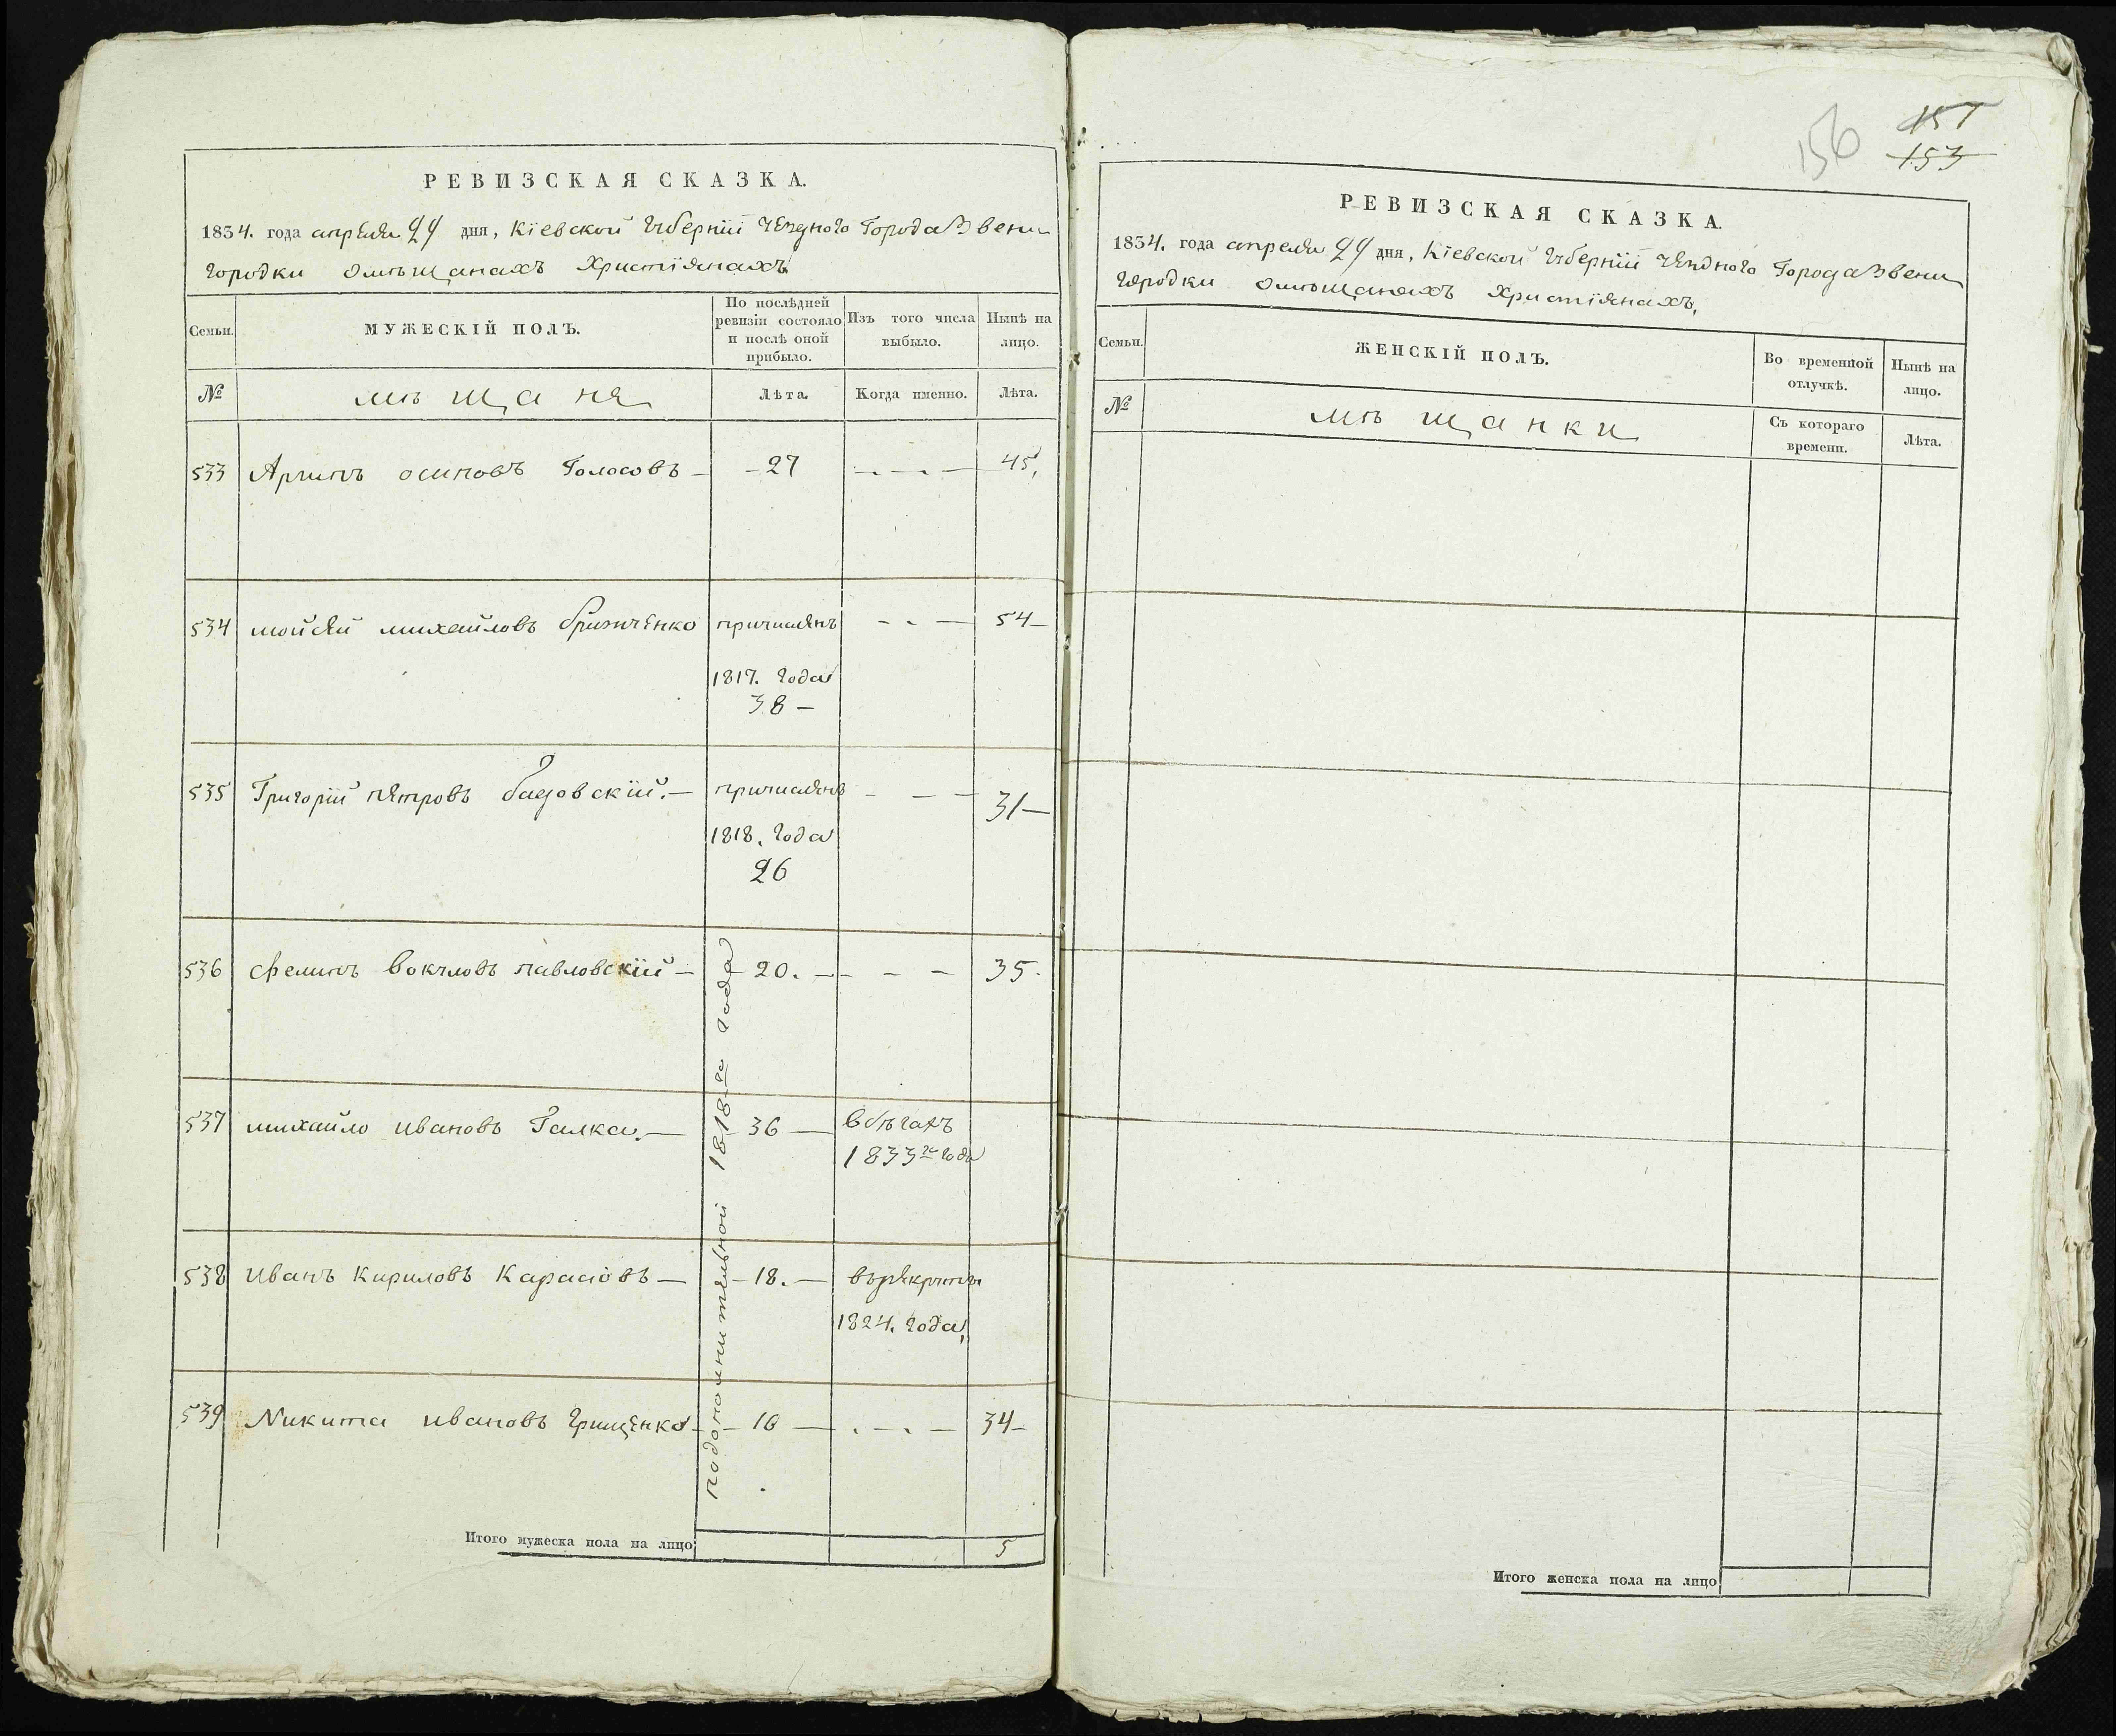 РЕВИЗСКАЯ СКАЗКА.
1834. года апреля 29 дня, Кіевской Губерніи Уезднаго Города Звени
городки о мѣщанахъ Христіянахъ
Семьи.
МУЖЕСКІЙ ПОЛЪ.
По послѣдней ревизіи состояло и послѣ оной прибыло.
Изъ того числа выбыло.
Нынѣ на лицо.
№
мѣщаня
Лѣта.
Когда именно.
Лѣта.
533 осиповъ Голосовъ — 27 - - - 45,
534 мойсей михайловъ причисленъ - - — 54—
1817. года
38 —
535 Григорій петровъ причисленъ - — — 31—
1818. года
26
536 Филипъ павловскій — 20. — - — — 35.
537 михайло ивановъ Галка. — 36 — в бѣгахъ
1833го года
538 Иванъ Кириловъ Карасіовъ — - 18. — в рекруты
1824. года,
539 Никита ивановъ Грищенко - - 16 — . - . — 34—
по дополнительной 1818го года
Итого мужеска пола на лицо 5
156
151
153
РЕВИЗСКАЯ СКАЗКА.
1834. года апреля 29 дня, Кіевской Губерніи Уезднаго Города Звени
городки о мѣщанахъ Христіянахъ,
Семьи.
ЖЕНСКІЙ ПОЛЪ.
Во временной отлучкѣ.
Нынѣ на лицо.
№
мѣщанки
Съ котораго времени.
Лѣта.
Итого женска пола на лицо